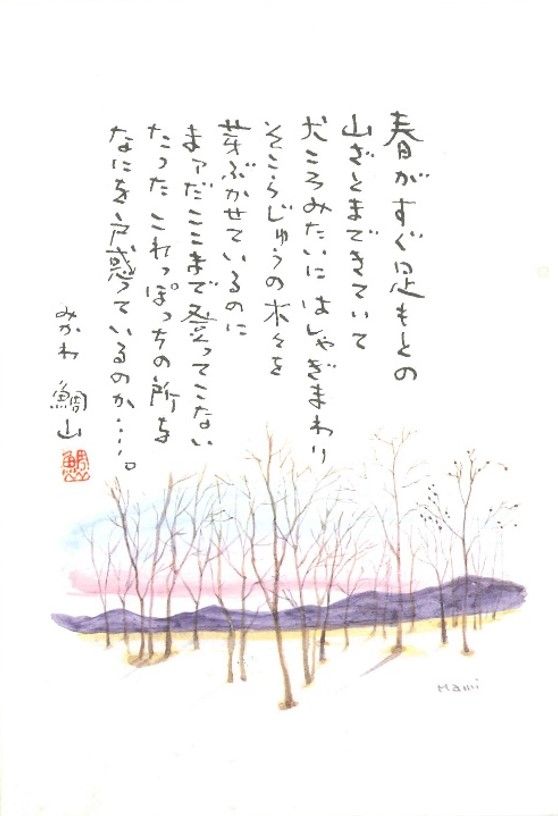 春がすぐ足もとの
山ざとまできていて
犬ころみたいにはしゃぎまわり
そこらじゅうの木々を
芽ぶかせているのに
まァだここまで登ってこない
たったこれっぽっちの所を
なにを戸惑っているのか……。
みかわ 鯛山
鯛山
Mami